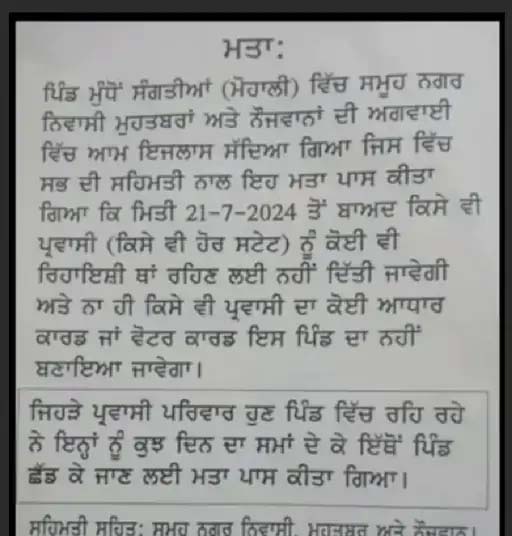 ਮਤਾ:
ਪਿੰਡ ਮੁੰਧੋਂ ਸੰਗਤੀਆਂ (ਮੋਹਾਲੀ) ਵਿੱਚ ਸਮੂਹ ਨਗਰ
ਨਿਵਾਸੀ ਮੁਹਤਬਰਾਂ ਅਤੇ ਨੌਜਵਾਨਾਂ ਦੀ ਅਗਵਾਈ
ਵਿੱਚ ਆਮ ਇਜਲਾਸ ਸੱਦਿਆ ਗਿਆ ਜਿਸ ਵਿੱਚ
ਸਭ ਦੀ ਸਹਿਮਤੀ ਨਾਲ ਇਹ ਮਤਾ ਪਾਸ ਕੀਤਾ
ਗਿਆ ਕਿ ਮਿਤੀ 21-7-2024 ਤੋਂ ਬਾਅਦ ਕਿਸੇ ਵੀ
ਪ੍ਰਵਾਸੀ (ਕਿਸੇ ਵੀ ਹੋਰ ਸਟੇਟ) ਨੂੰ ਕੋਈ ਵੀ
ਰਿਹਾਇਸ਼ੀ ਥਾਂ ਰਹਿਣ ਲਈ ਨਹੀਂ ਦਿੱਤੀ ਜਾਵੇਗੀ
ਅਤੇ ਨਾ ਹੀ ਕਿਸੇ ਵੀ ਪ੍ਰਵਾਸੀ ਦਾ ਕੋਈ ਆਧਾਰ
ਕਾਰਡ ਜਾਂ ਵੋਟਰ ਕਾਰਡ ਇਸ ਪਿੰਡ ਦਾ ਨਹੀਂ
ਬਣਾਇਆ ਜਾਵੇਗਾ।
ਜਿਹੜੇ ਪ੍ਰਵਾਸੀ ਪਰਿਵਾਰ ਹੁਣ ਪਿੰਡ ਵਿੱਚ ਰਹਿ ਰਹੇ
ਨੇ ਇਨ੍ਹਾਂ ਨੂੰ ਕੁਝ ਦਿਨ ਦਾ ਸਮਾਂ ਦੇ ਕੇ ਇੱਥੋਂ ਪਿੰਡ
ਛੱਡ ਕੇ ਜਾਣ ਲਈ ਮਤਾ ਪਾਸ ਕੀਤਾ ਗਿਆ।
ਸਹਿਮਤੀ ਸਹਿਤ: ਸਮੂਹ ਨਗਰ ਨਿਵਾਸੀ, ਮੁਹਤਬਰ ਅਤੇ ਨੌਜਵਾਨ।